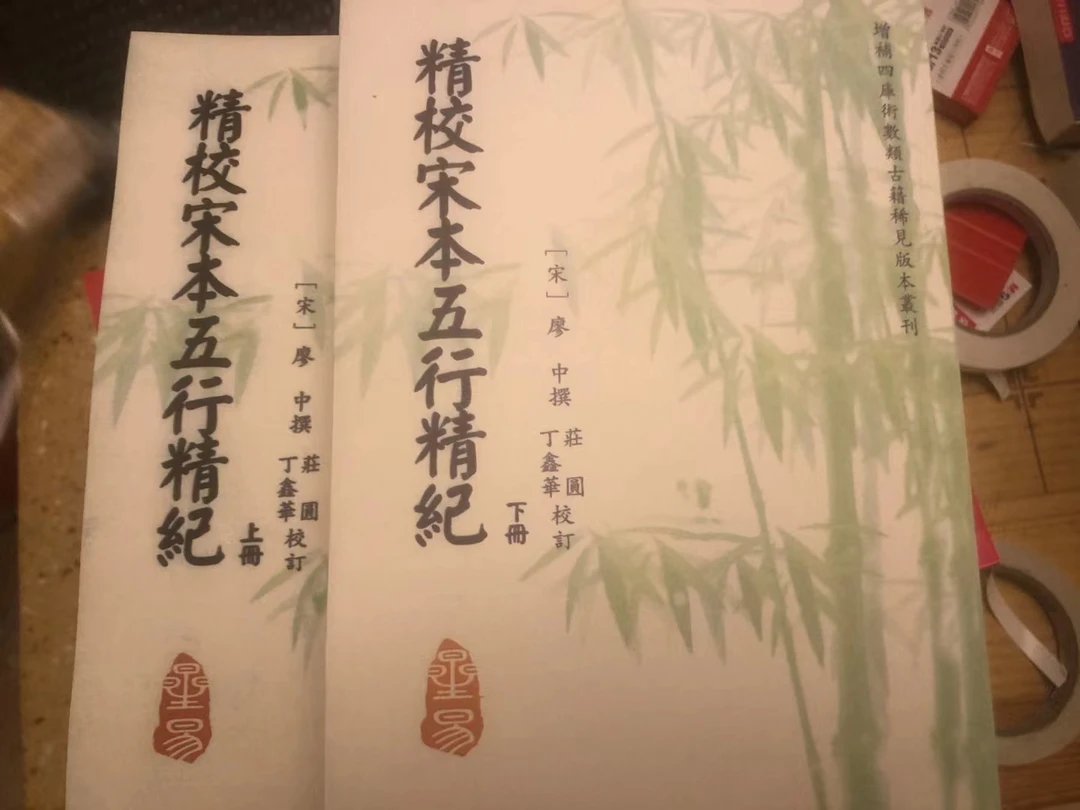 增補四庫術數類古籍稀見版本叢刊
[宋]廖 中撰
莊 圓
丁鑫華
校訂
精校宋本五行精紀
下冊
星易
[宋]廖 中撰
莊 圓
丁鑫華
校訂
精校宋本五行精紀
上冊
星易